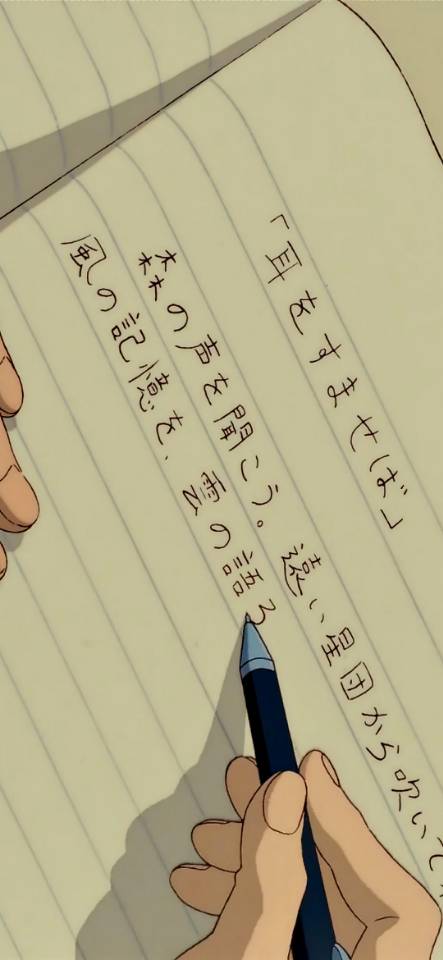 「耳をすませば」
森の声を聞こう。遠い星団から吹いて
風の記憶を、雲の語る